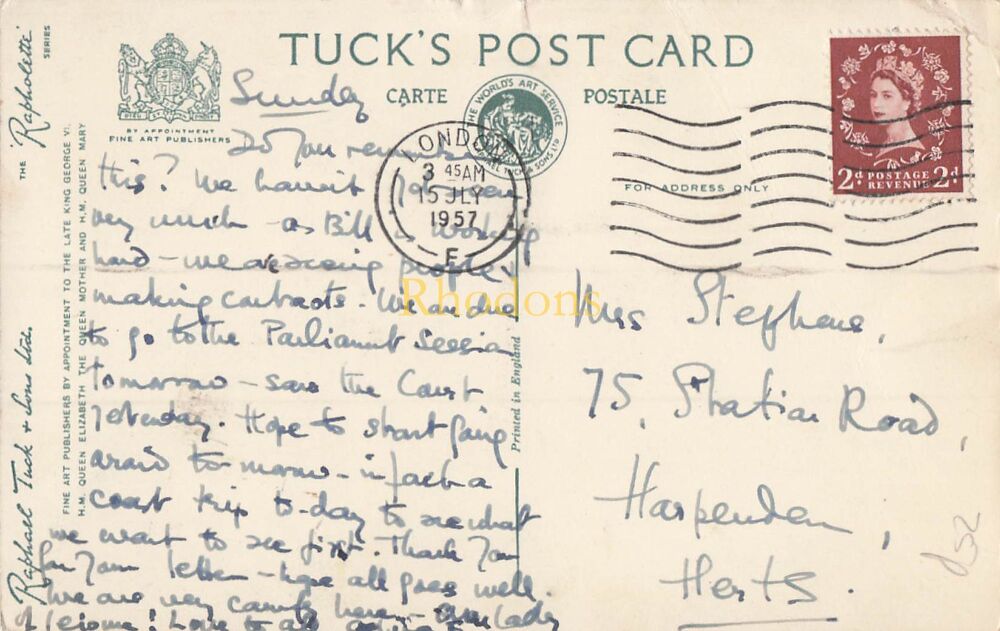 TUCK'S POST CARD
CARTE POSTALE
BY APPOINTMENT
FINE ART PUBLISHERS
THE WORLD'S ART SERVICE
RAPHAEL TUCK & SONS LTD
FOR ADDRESS ONLY
LONDON
3 45 AM
15 JLY
1957
F
2d POSTAGE REVENUE 2d
THE "Rapholette" SERIES
FINE ART PUBLISHERS BY APPOINTMENT TO THE LATE KING GEORGE VI.
H.M. QUEEN ELIZABETH THE QUEEN MOTHER AND H.M. QUEEN MARY
Raphael Tuck & Sons Ltd.
Printed in England
Rhodons
Sunday
Do you remember
this? We haven't
very much - as Bill is working
hard - we are seeing people &
making contacts. We are due
to go to the Parliament Session
tomorrow - saw the Court
yesterday. Hope to start going
around to-morrow - in fact a
coast trip to-day to see what
we want to see first. Thank you
for your letter - hope all goes well.
We are very comfy here -
Welcome! Love to all
Mrs Stephens,
75, Station Road,
Harpenden,
Herts.
£52